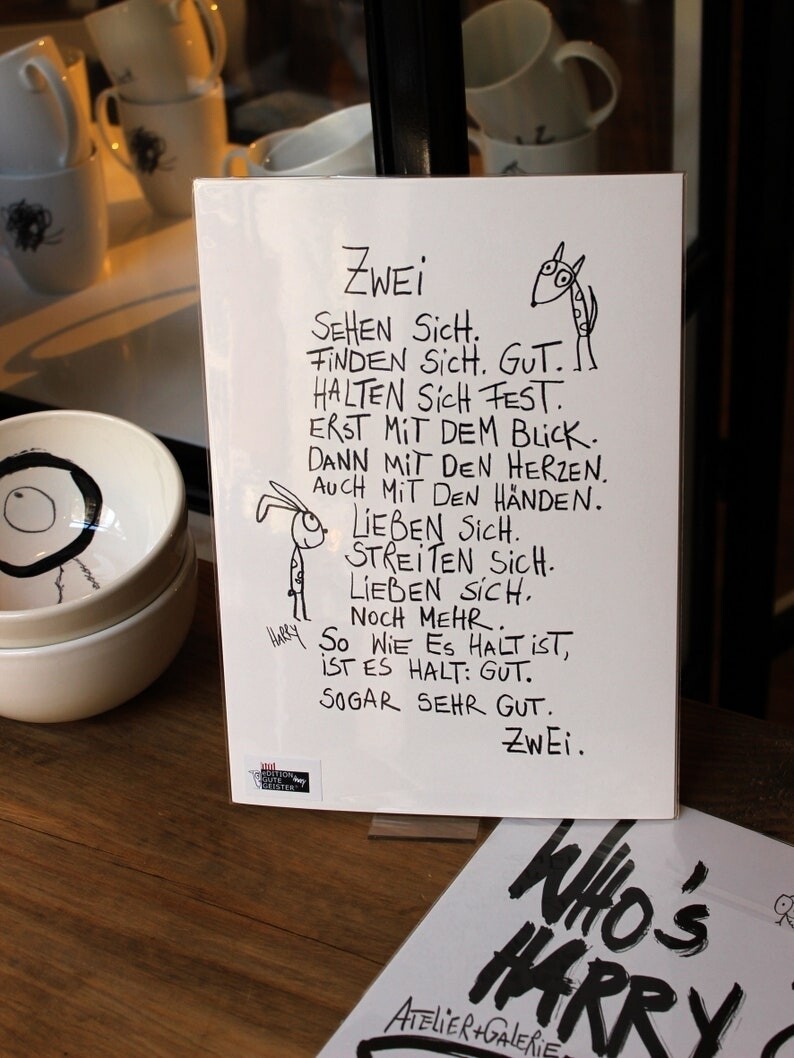 ZWEI
SEHEN SICH.
FINDEN SICH. GUT.
HALTEN SICH FEST.
ERST MIT DEM BLICK.
DANN MIT DEN HERZEN.
AUCH MIT DEN HÄNDEN.
LIEBEN SICH.
STREITEN SICH.
LIEBEN SICH.
NOCH MEHR.
HARRY
SO WIE ES HALT IST,
IST ES HALT: GUT.
SOGAR SEHR GUT.
ZWEI.
EDITION
GUTE
GEISTER
WHO'S
HARRY
ATELIER+GALERIE